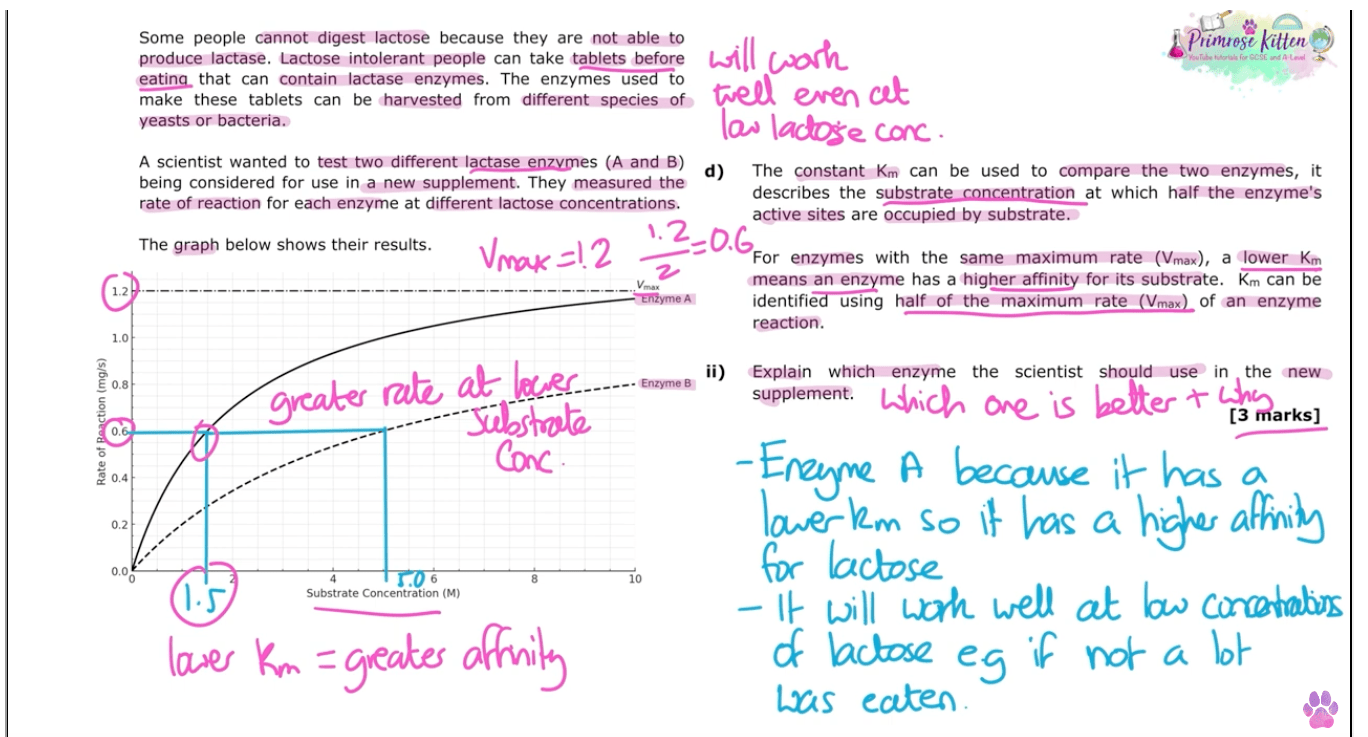 Some people cannot digest lactose because they are not able to
produce lactase. Lactose intolerant people can take tablets before
eating that can contain lactase enzymes. The enzymes used to
make these tablets can be harvested from different species of
yeasts or bacteria.
A scientist wanted to test two different lactase enzymes (A and B)
being considered for use in a new supplement. They measured the
rate of reaction for each enzyme at different lactose concentrations.
The graph below shows their results.
Vmax = 1.2
1.2
2
=0.6
Vmax
Enzyme A
Enzyme B
1.2
1.0
0.8
0.6
0.4
0.2
0.0
Rate of Reaction (mg/s)
greater rate at lower
substrate
conc.
0
2
4
6
8
10
1.5
5.0
Substrate Concentration (M)
lower Km = greater affinity
Primrose Kitten
YouTube tutorials for GCSE and A-Level
will work
well even at
low lactose conc.
d) The constant Km can be used to compare the two enzymes, it
describes the substrate concentration at which half the enzyme's
active sites are occupied by substrate.
For enzymes with the same maximum rate (Vmax), a lower Km
means an enzyme has a higher affinity for its substrate. Km can be
identified using half of the maximum rate (Vmax) of an enzyme
reaction.
ii) Explain which enzyme the scientist should use in the new
supplement.
which one is better + why
[3 marks]
- Enzyme A because it has a
lower km so it has a higher affinity
for lactose
- It will work well at low concentrations
of lactose eg if not a lot
was eaten.